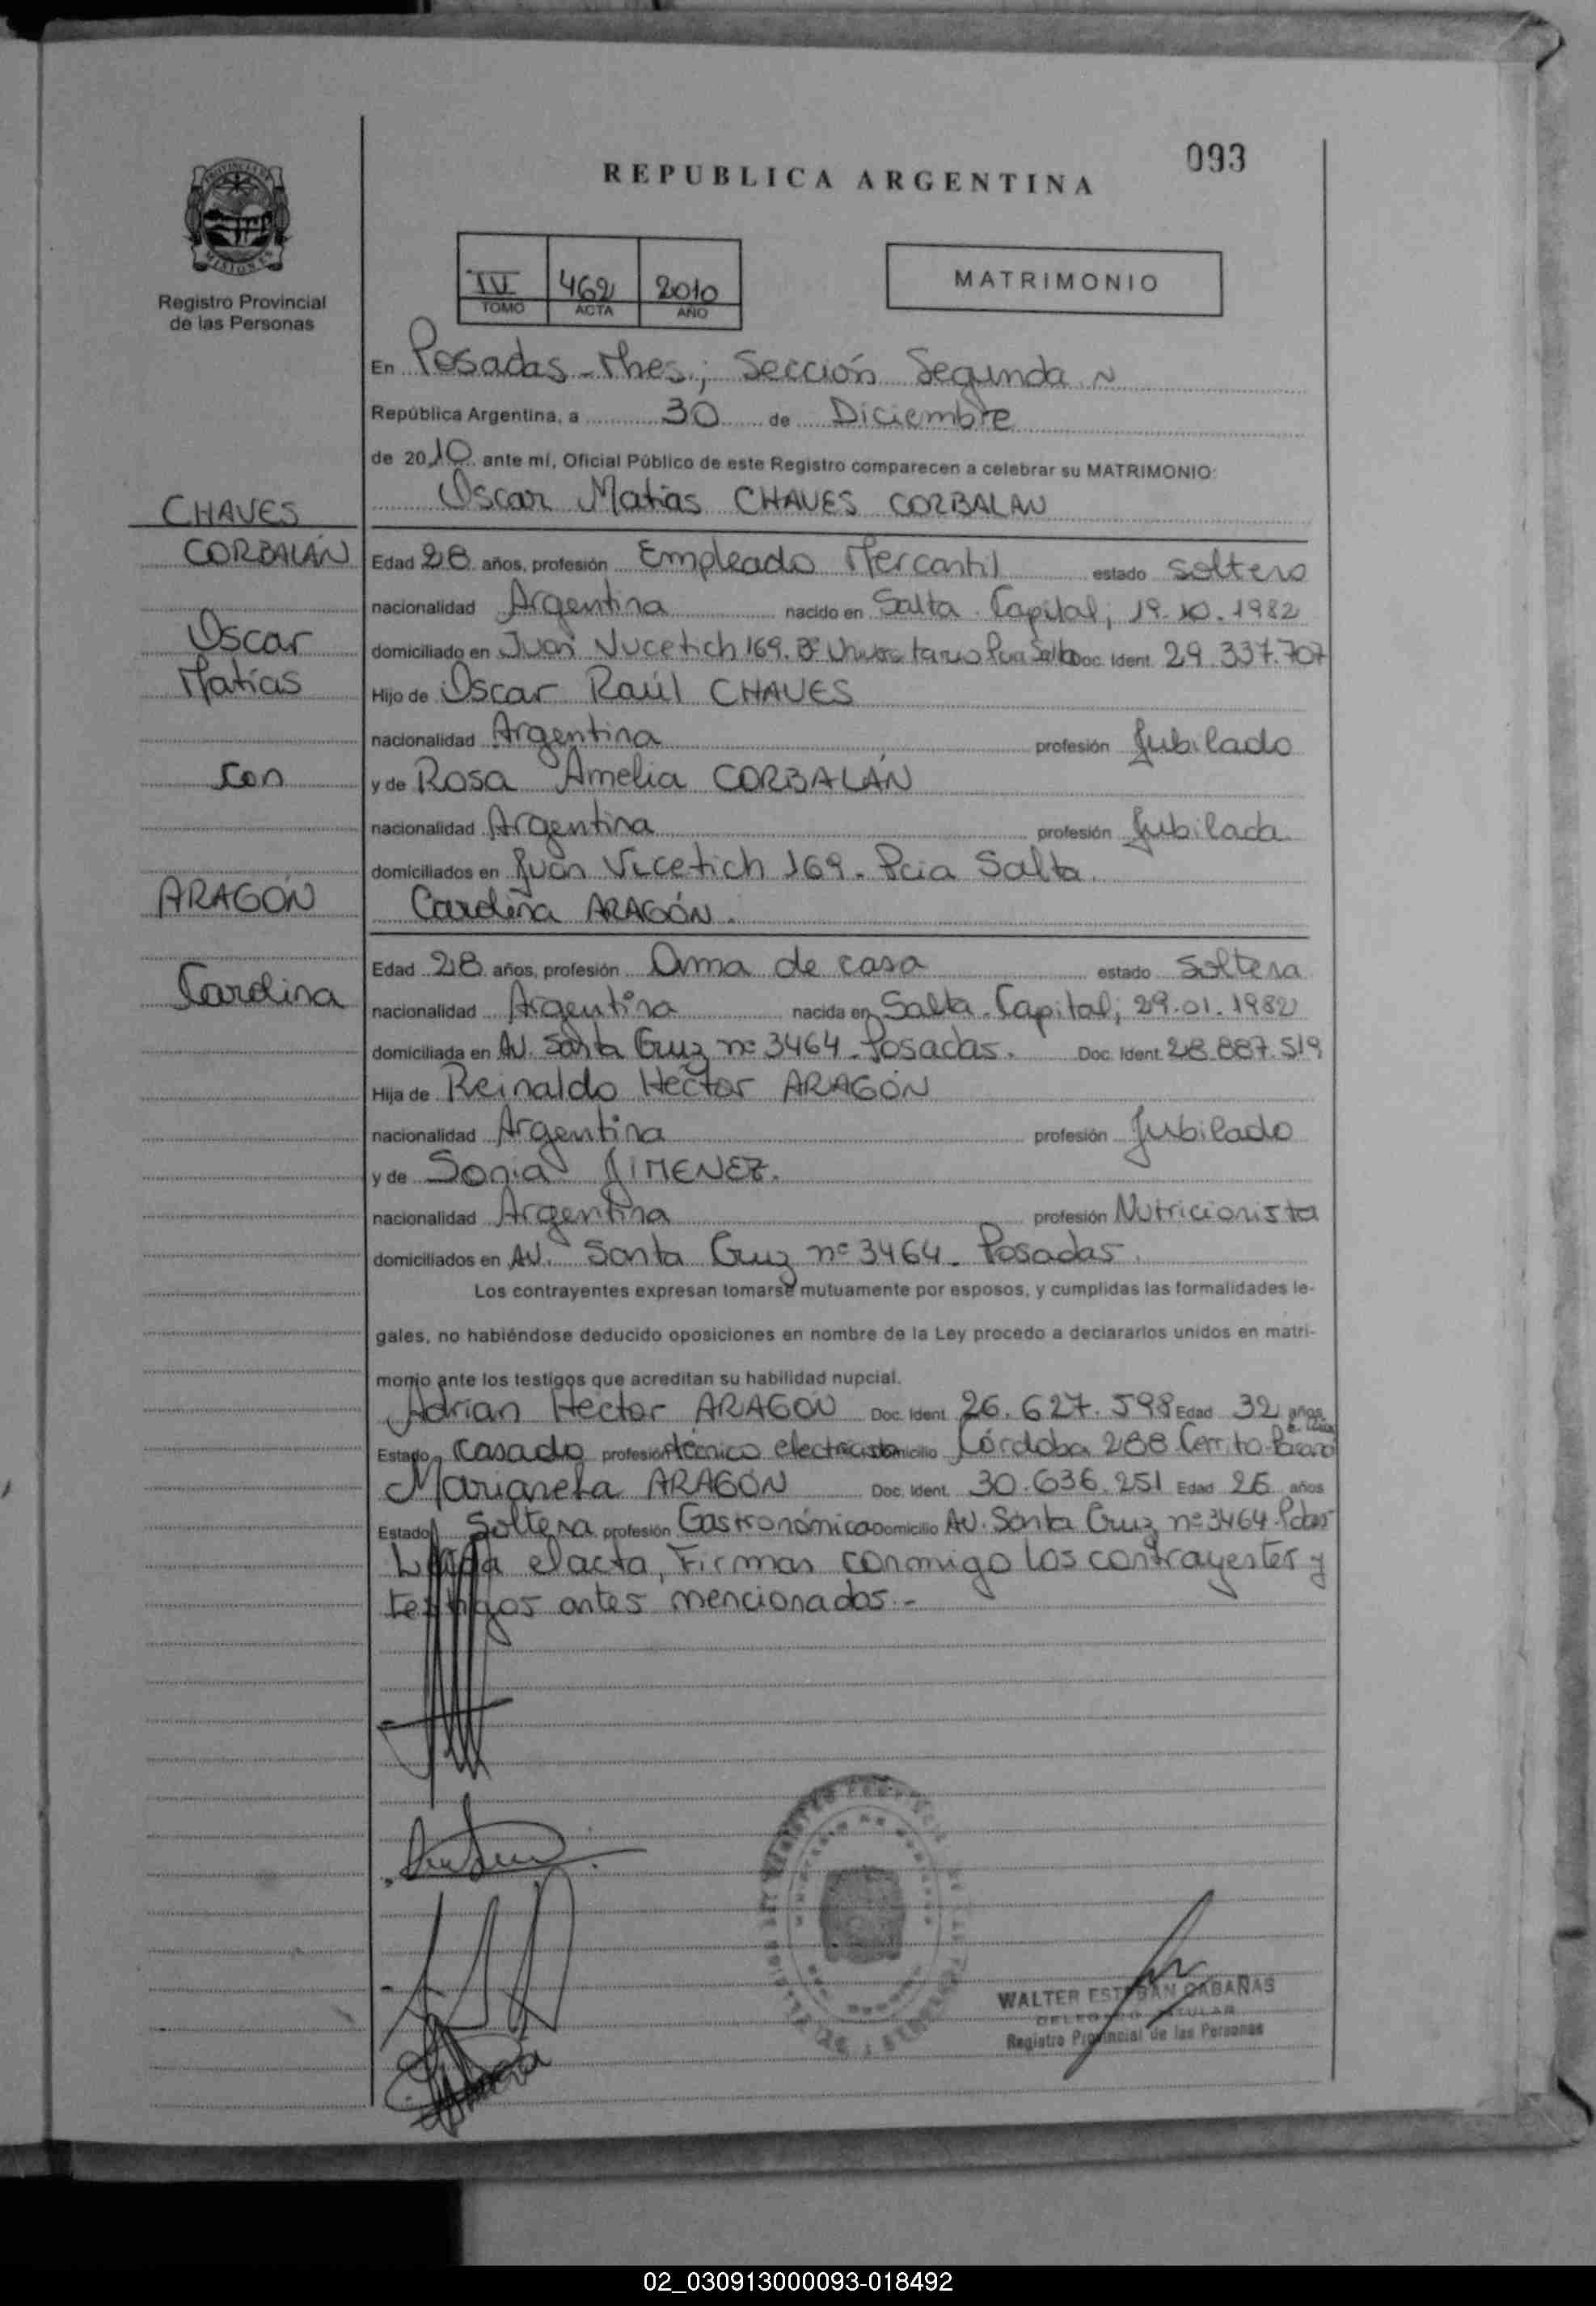 093
REPUBLICA ARGENTINA
PROVINCIA DE
MISIONES
Registro Provincial
de las Personas
IV 462 2010
TOMO ACTA AÑO
MATRIMONIO
En Posadas - Mnes.; Sección Segunda
República Argentina, a 30 de Diciembre
de 2010 ante mí, Oficial Público de este Registro comparecen a celebrar su MATRIMONIO:
Oscar Matías CHAVES CORBALAN
CHAVES
CORBALÁN
Oscar
Matías
con
ARAGÓN
Carolina
Edad 28 años, profesión Empleado Mercantil estado soltero
nacionalidad Argentina nacido en Salta - Capital; 19.10.1982
domiciliado en Juan Vucetich 169. Bº Universitario Pcia Salta Doc. Ident. 29.337.707
Hijo de Oscar Raúl CHAVES
nacionalidad Argentina profesión Jubilado
y de Rosa Amelia CORBALÁN
nacionalidad Argentina profesión Jubilada
domiciliados en Juan Vicetich 169. Pcia Salta.
Carolina ARAGÓN.
Edad 28 años, profesión Ama de casa estado soltera
nacionalidad Argentina nacida en Salta - Capital; 29.01.1982
domiciliada en AV. Santa Cruz nº 3464 - Posadas. Doc. Ident. 28.887.519
Hija de Reinaldo Héctor ARAGÓN
nacionalidad Argentina profesión Jubilado
y de Sonia JIMENEZ.
nacionalidad Argentina profesión Nutricionista
domiciliados en AV. Santa Cruz nº 3464 - Posadas.
Los contrayentes expresan tomarse mutuamente por esposos, y cumplidas las formalidades le-
gales, no habiéndose deducido oposiciones en nombre de la Ley procedo a declararlos unidos en matri-
monio ante los testigos que acreditan su habilidad nupcial.
Adrian Hector ARAGÓN Doc. Ident. 26.627.598 Edad 32 años
Estado casado profesión técnico electricista domicilio Córdoba 288 Cerrito
Marianela ARAGÓN Doc. Ident. 30.636.251 Edad 26 años
Estado Soltera profesión Gastronómica Domicilio AV. Santa Cruz nº 3464 Pdas
Leída el acta, Firman conmigo los contrayentes y
testigos antes mencionados.-
WALTER ESTEBAN CABAÑAS
DELEGADO TITULAR
Registro Provincial de las Personas
02_030913000093-018492